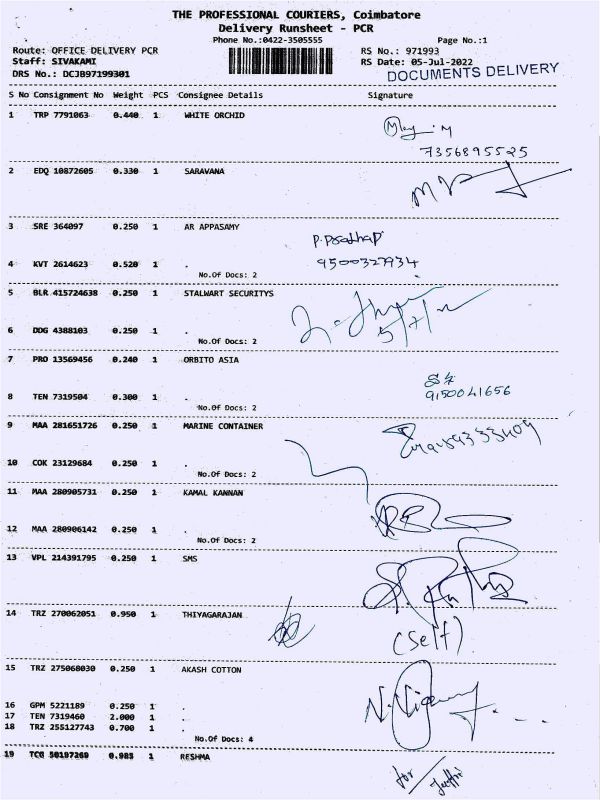 THE PROFESSIONAL COURIERS, Coimbatore
Delivery Runsheet - PCR
Phone No.:0422-3505555 Page No.:1
Route: OFFICE DELIVERY PCR RS No.: 971993
Staff: SIVAKAMI RS Date: 05-Jul-2022
DRS No.: DCJB97199301 DOCUMENTS DELIVERY
S No Consignment No Weight PCS Consignee Details Signature
1 TRP 7791063 0.440 1 WHITE ORCHID
7356895525
2 EDQ 10872605 0.330 1 SARAVANA
3 SRE 364097 0.250 1 AR APPASAMY
P. Prathap
4 KVT 2614623 0.520 1 . 9500327934
No.Of Docs: 2
5 BLR 415724638 0.250 1 STALWART SECURITYS
5/7/22
6 DDG 4388103 0.250 1 .
No.Of Docs: 2
7 PRO 13569456 0.240 1 ORBITO ASIA
8 TEN 7319504 0.300 1 . 9150041656
No.Of Docs: 2
9 MAA 281651726 0.250 1 MARINE CONTAINER
10 COK 23129684 0.250 1 .
No.Of Docs: 2
11 MAA 280905731 0.250 1 KAMAL KANNAN
12 MAA 280906142 0.250 1 .
No.Of Docs: 2
13 VPL 214391795 0.250 1 SMS
14 TRZ 270062051 0.950 1 THIYAGARAJAN
(Self)
15 TRZ 275068030 0.250 1 AKASH COTTON
16 GPM 5221189 0.250 1 .
17 TEN 7319460 2.000 1 .
18 TRZ 255127743 0.700 1 .
No.Of Docs: 4
19 TCG 50197269 0.985 1 RESHMA
for